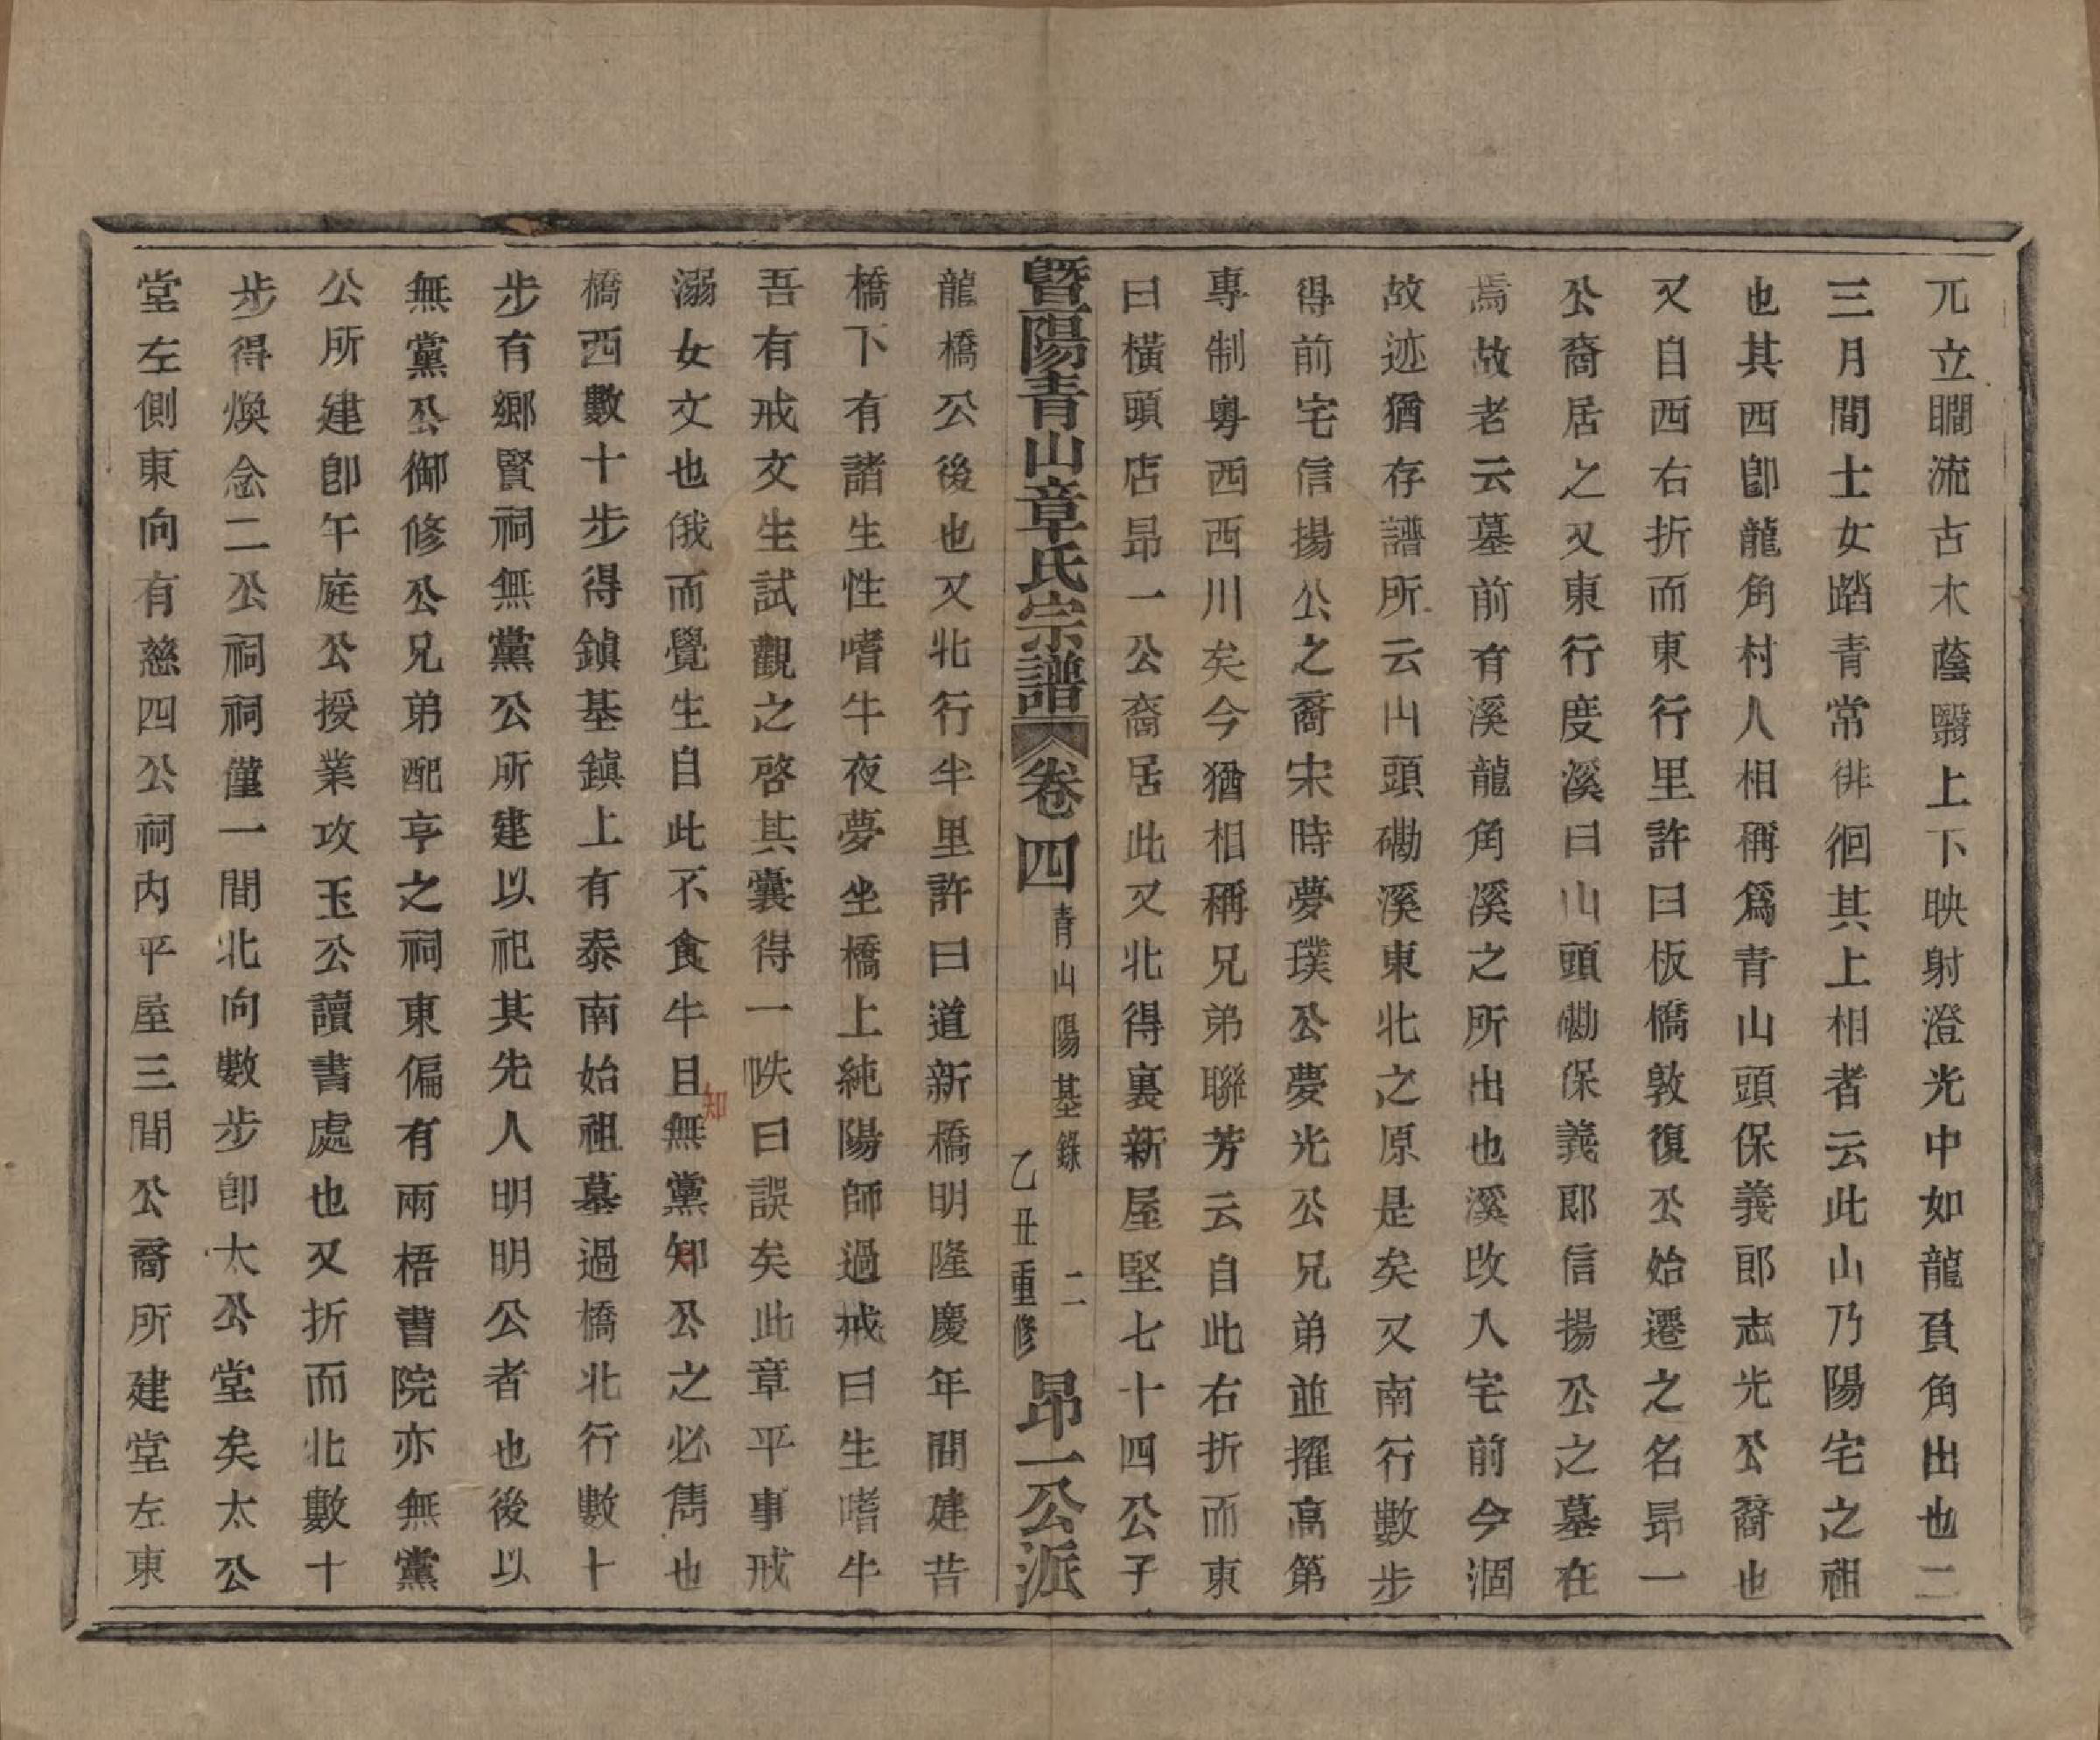 兀立瞷流古木蔭翳上下映射澄光中如龍頁角出也二
三月間士女踏青常徘徊其上相者云此山乃陽宅之祖
也其西卽龍角村人相稱爲青山頭保義郎志光公裔也
又自西右折而東行里許曰板橋敦復公始遷之名昂一
公裔居之又東行度溪曰山頭磡保義郎信揚公之墓在
焉故老云墓前有溪龍角溪之所出也溪改入宅前今涸
故迹猶存譜所云山頭磡溪東北之原是矣又南行數步
得前宅信揚公之裔宋時夢璞公夢光公兄弟並擢高第
專制粵西西川矣今猶相稱兄弟聯芳云自此右折而東
曰橫頭店昂一公裔居此又北得裏新屋堅七十四公子
暨陽青山章氏宗譜 卷四 青山陽基錄 二 乙丑重修 昂一公派
龍橋公後也又北行半里許曰道新橋明隆慶年間建昔
橋下有諸生性嗜牛夜夢坐橋上純陽師過戒曰生嗜牛
吾有戒文生試觀之啓其囊得一帙曰誤矣此章平事戒
溺女文也俄而覺生自此不食牛且無黨知公之必雋也
知
橋西數十步得鎮基鎮上有泰南始祖墓過橋北行數十
步有鄉賢祠無黨公所建以祀其先人明明公者也後以
無黨公御修公兄弟配亨之祠東偏有兩梧書院亦無黨
公所建卽午庭公授業攻玉公讀書處也又折而北數十
步得煥念二公祠祠僅一間北向數步卽大公堂矣太公
堂左側東向有慈四公祠內平屋三間公裔所建堂左東